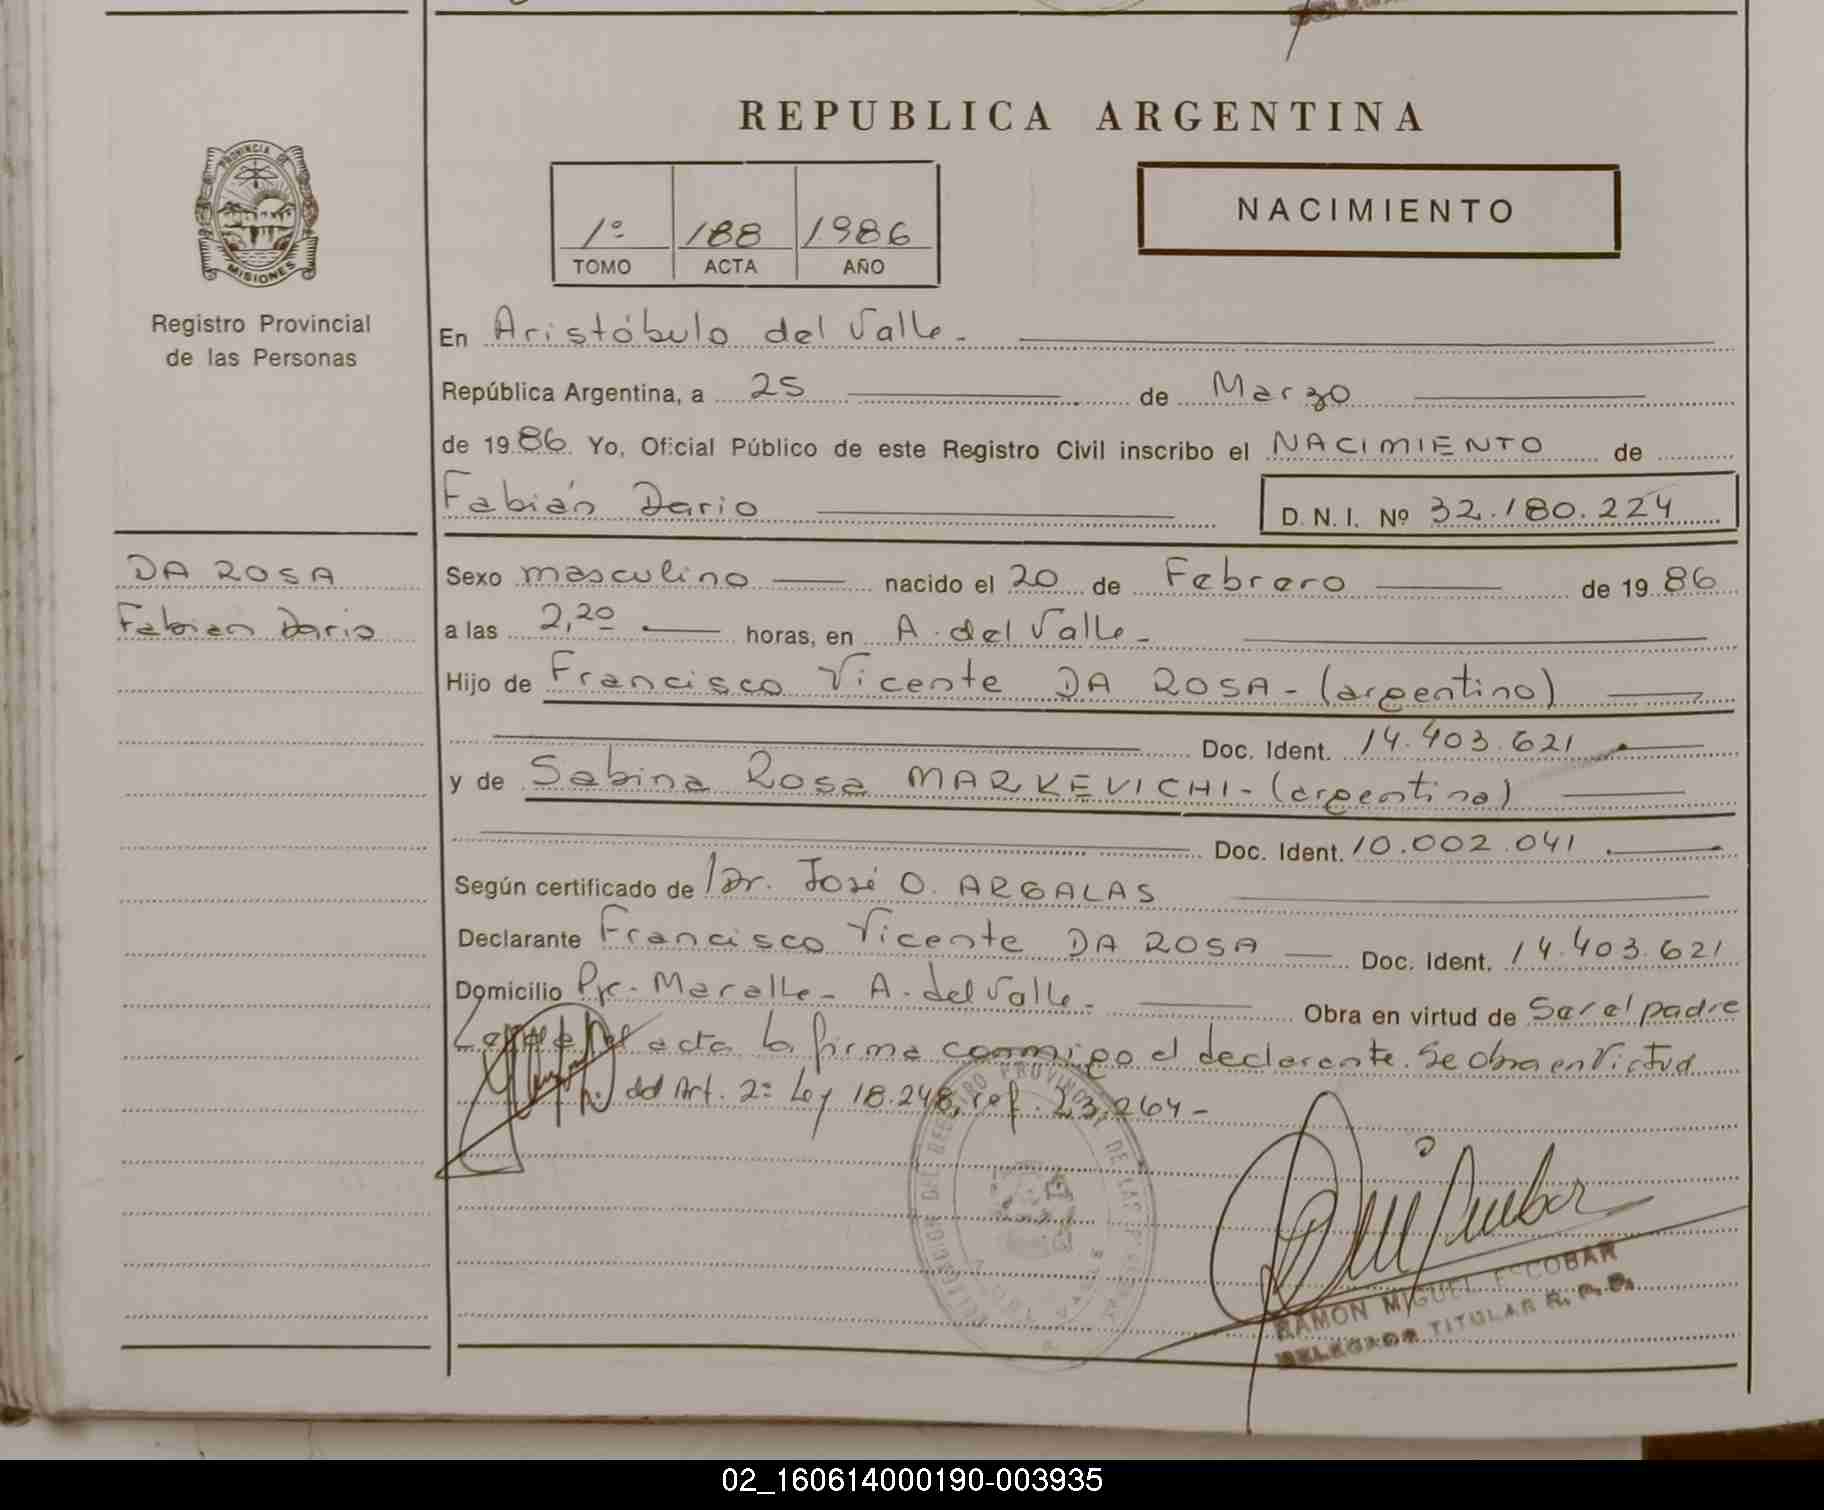 REPUBLICA ARGENTINA
PROVINCIA DE
MISIONES
Registro Provincial
de las Personas
1º 188 1986
TOMO ACTA AÑO
NACIMIENTO
En Aristóbulo del Valle.-
República Argentina, a 25 de Marzo
de 1986. Yo, Oficial Público de este Registro Civil inscribo el NACIMIENTO de
Fabián Dario D.N.I. Nº 32.180.224
DA ROSA
Fabian Dario
Sexo masculino nacido el 20 de Febrero de 1986
a las 2,20 horas, en A. del Valle-
Hijo de Francisco Vicente DA ROSA-(argentino)
Doc. Ident. 14.403.621
y de Sabina Rosa MARKEVICHI-(argentina)
Doc. Ident. 10.002.041
Según certificado de Dr. José O. ARGALAS
Declarante Francisco Vicente DA ROSA Doc. Ident. 14.403.621
Domicilio Pje. Maralle- A. del Valle- Obra en virtud de Ser el padre
acta la firma conmigo el declarante. Se obra en Virtud
del Art. 2º Ley 18.248, ref. 23.264-
RAMON MIGUEL ESCOBAR
DELEGADO TITULAR R. P. P.
02_160614000190-003935